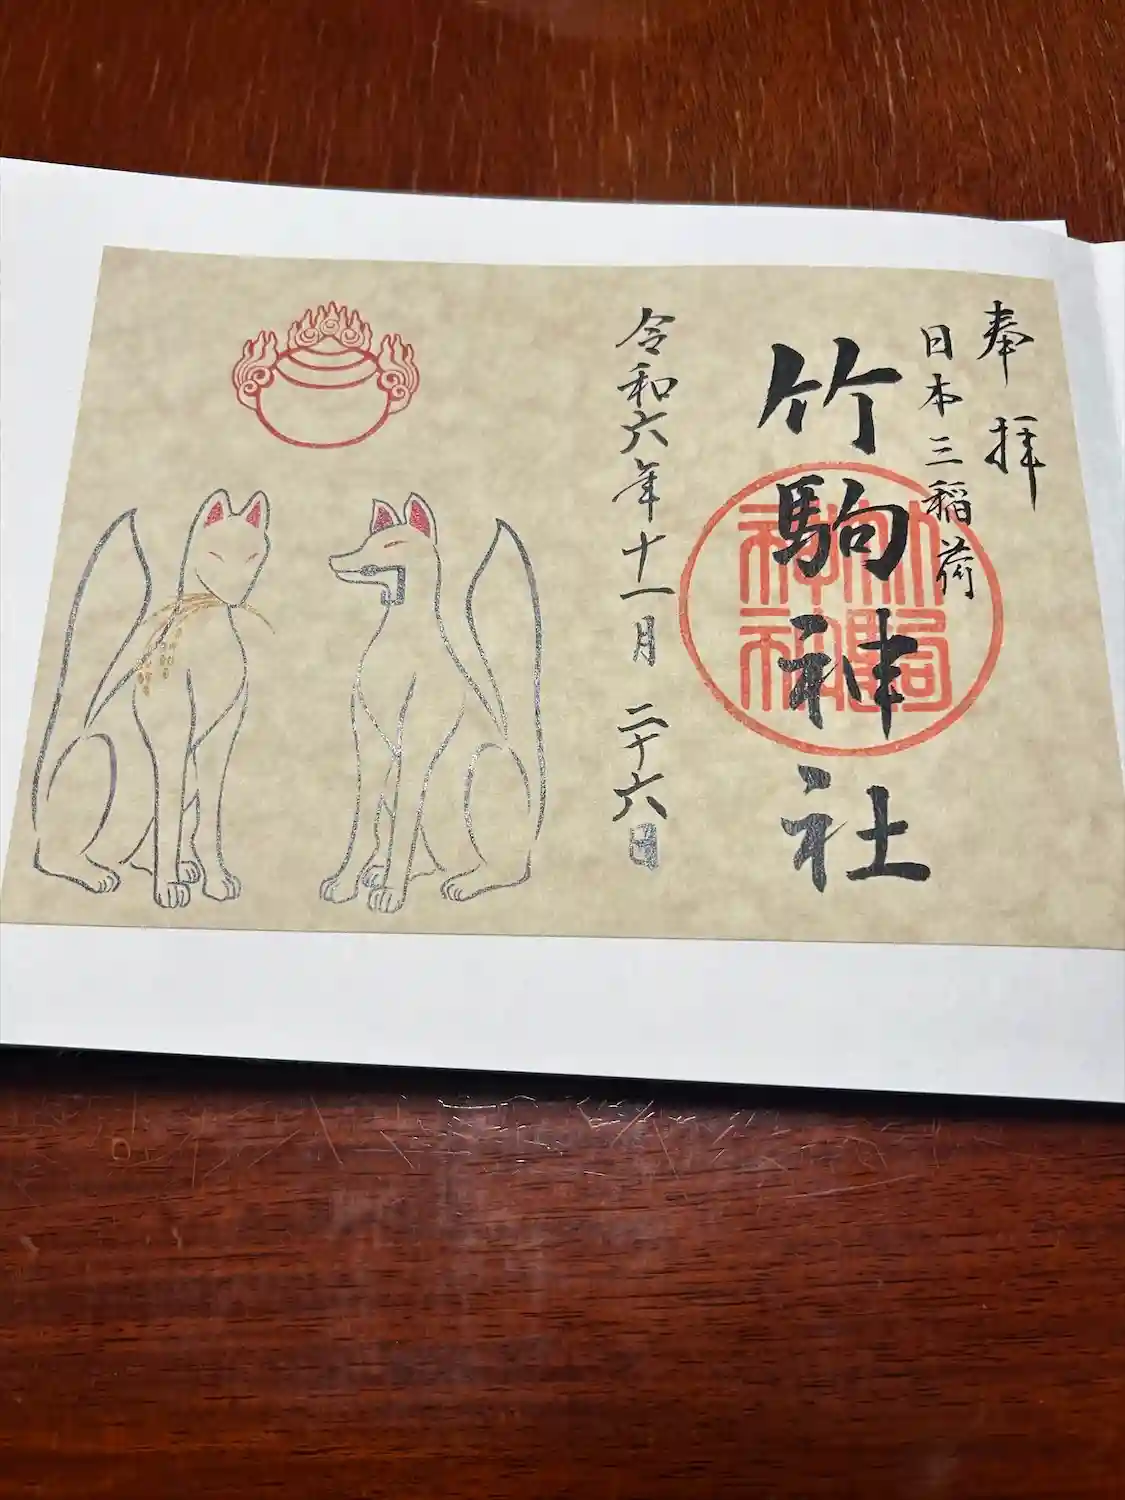 奉拝
日本三稲荷
竹駒神社
令和六年十一月二十六日
竹駒神社